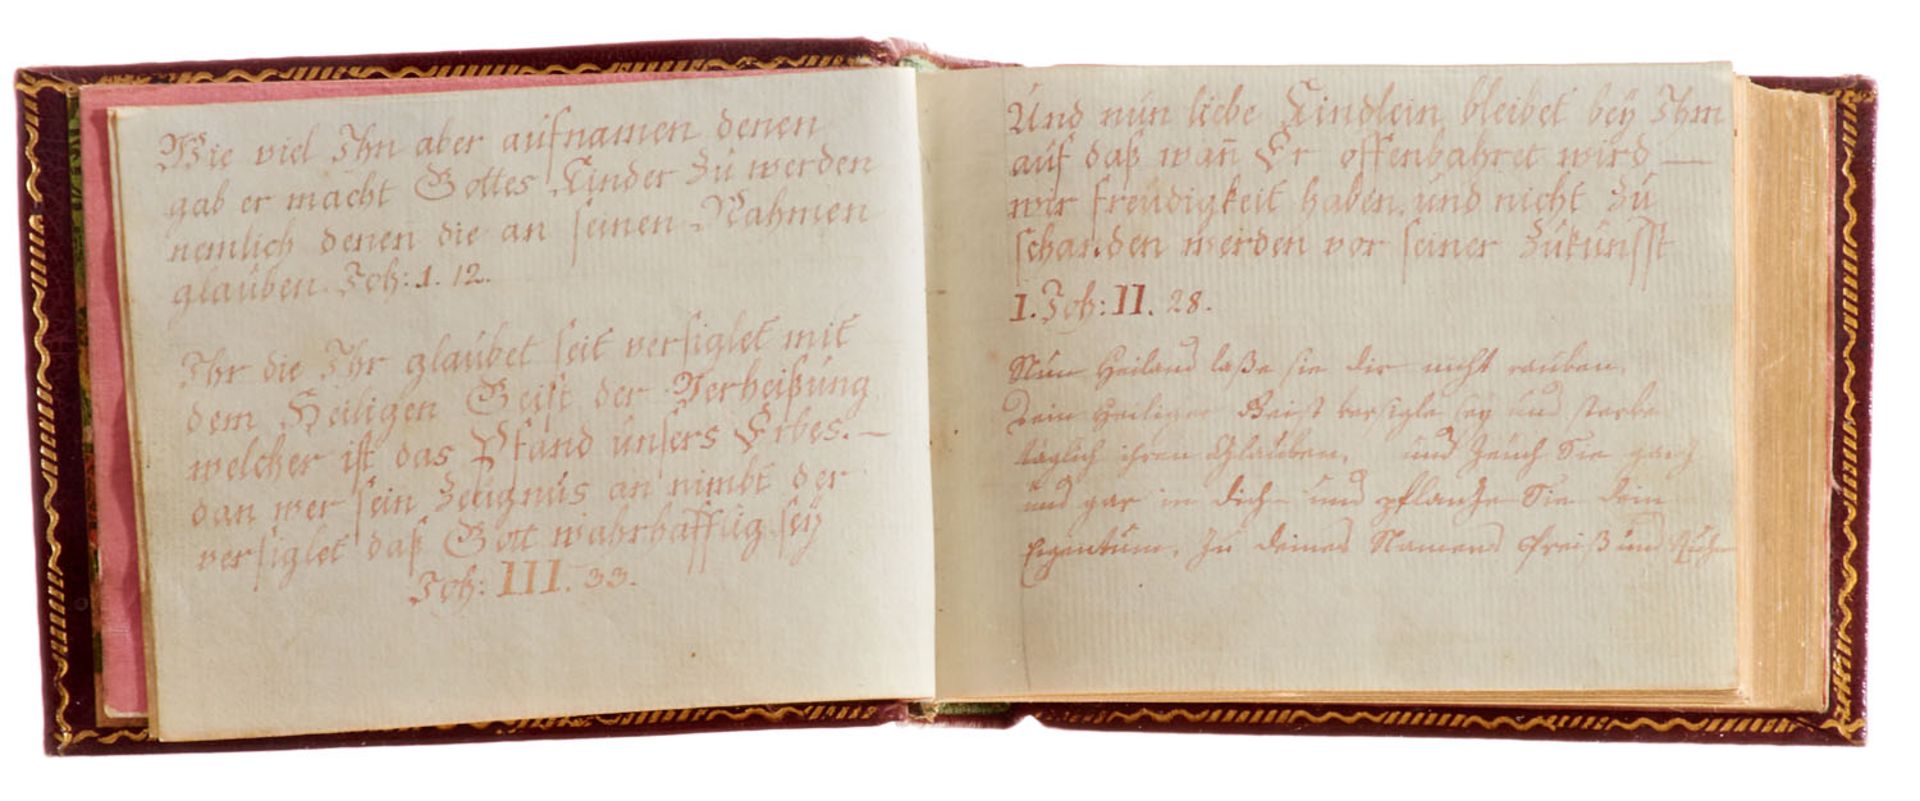 Wie viel Ihn aber aufnamen denen
gab er macht Gottes Kinder zu werden
nemlich denen die an seinen Nahmen
glauben. Joh: 1. 12.
Ihr die Ihr glaubet seit versiglet mit
dem Heiligen Geist der Verheißung
welcher ist das Pfand unsers Erbes. —
dan wer sein Zeugnus an nimbt der
versiglet daß Gott wahrhafftig sey
Joh: III. 33.
Und nun liebe Kindlein bleibet bey Ihm
auf daß wan̄ Er offenbahret wird —
wir freudigkeit haben, und nicht zu
schanden werden vor seiner Zukunfft
I. Joh: II. 28.
Nun Heiland laße sie dir nicht rauben,
Dein Heiliger Geist versigle sey und starke
täglich ihren Glauben, und zeuch Sie gantz
und gar in dich und pflantze Sie dein
Eigentum, zu deines Namens Preiß und Ruhm